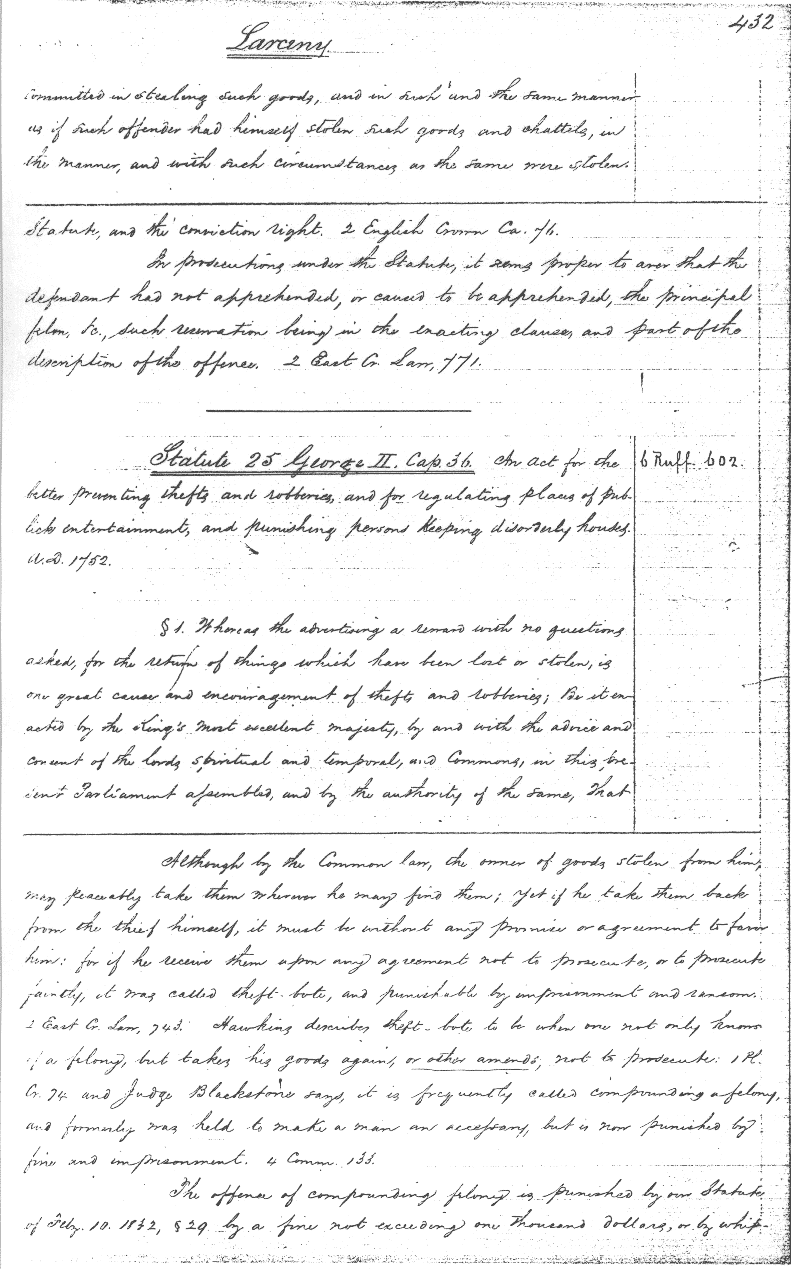 432
Larceny
committed in stealing such goods, and in such and the same manner
as if such offender had himself stolen such goods and chattels, in
the manner, and with such circumstances as the same were stolen.
Statute, and the conviction right. 2 English Crown Ca. 76.
In prosecutions under the Statute, it seems proper to aver that the
defendant had not apprehended, or caused to be apprehended, the principal
felon, &c., such reservation being in the enacting clause, and part of the
description of the offence. 2 East Cr. Law, 771.
Statute 25 George II. Cap. 36. An act for the
6 Ruff. 602.
better preventing thefts and robberies, and for regulating places of pub-
lick entertainment, and punishing persons keeping disorderly houses.
A.D. 1752.
§ 1. Whereas the advertising a reward with no questions
asked, for the return of things which have been lost or stolen, is
one great cause and encouragement of thefts and robberies; Be it en-
acted by the King's most excellent majesty, by and with the advice and
consent of the lords spiritual and temporal, and Commons, in this pre-
sent Parliament assembled, and by the authority of the same, That
Although by the Common law, the owner of goods stolen from him,
may peaceably take them wherever he may find them; yet if he take them back
from the thief himself, it must be without any promise or agreement to favor
him: for if he receive them upon any agreement not to prosecute, or to prosecute
faintly, it was called theft-bote, and punishable by imprisonment and ransom.
2 East Cr. Law, 743. Hawkins describes theft-bote to be when one not only knows
of a felony, but takes his goods again, or other amends, not to prosecute: 1 Pl.
Cr. 74 and Judge Blackstone says, it is frequently called compounding a felony,
and formerly was held to make a man an accessary, but is now punished by
fine and imprisonment. 4 Comm. 133.
The offence of compounding felony is punished by our Statute
of Feby. 10. 1832, § 29 by a fine not exceeding one thousand dollars, or by whip-